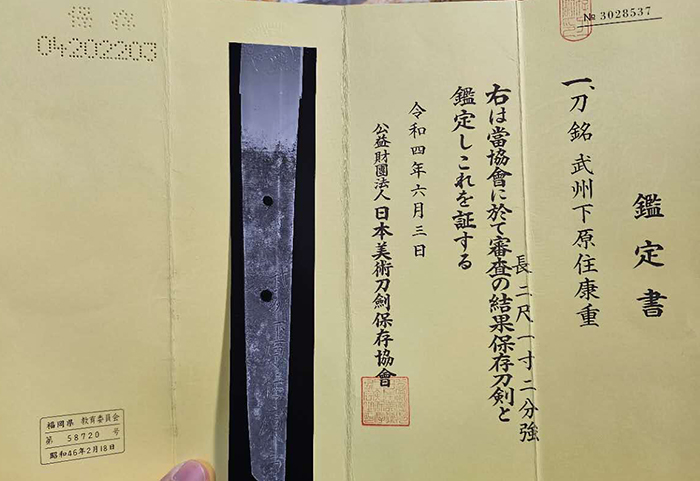 № 3028537
鑑定書
一、刀 銘 武州下原住康重
長二尺一寸二分強
右は當協會に於て審査の結果保存刀剣と
鑑定しこれを証する
令和四年六月三日
公益財團法人 日本美術刀劍保存協會
保存
04202203
福岡県 教育委員会
第 58720 号
昭和46年2月18日